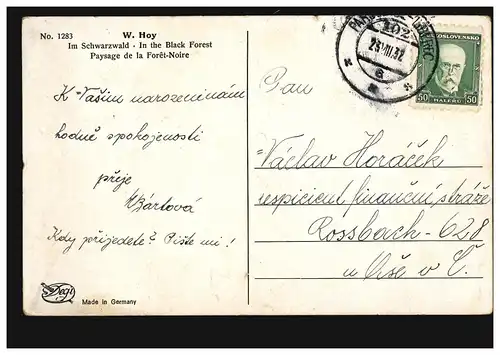 No. 1283
W. Hoy
Im Schwarzwald - In the Black Forest
Paysage de la Forêt-Noire
K Vašim narozeninám
hodně spokojenosti
přeje
Bártová
Kdy přijedete? Pište mi!
Degi
Made in Germany
102
23.VIII.32
6
ČESKOSLOVENSKO
50 50
HALÉŘŮ
Pan
Václav Horáček
respicient finanční stráže
Rossbach - 628
u Aše v Č.